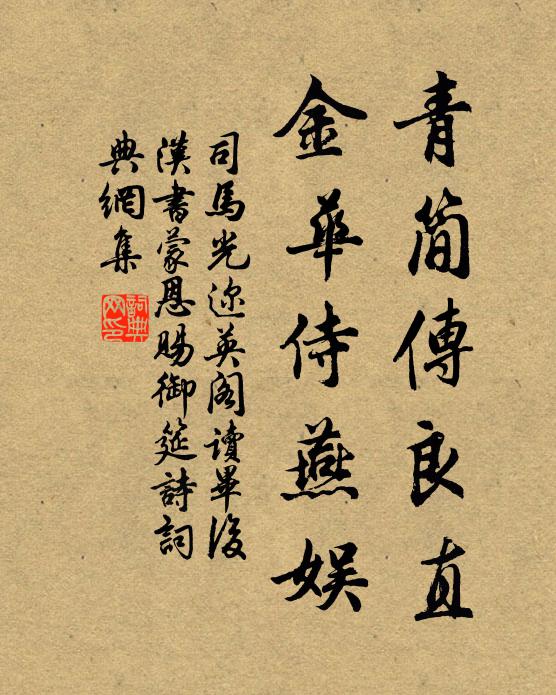 青簡傳良直
金華侍燕娛
司馬光邇英閣讀畢後
漢書蒙恩賜御筵詩詞
典網集
詞典
网印